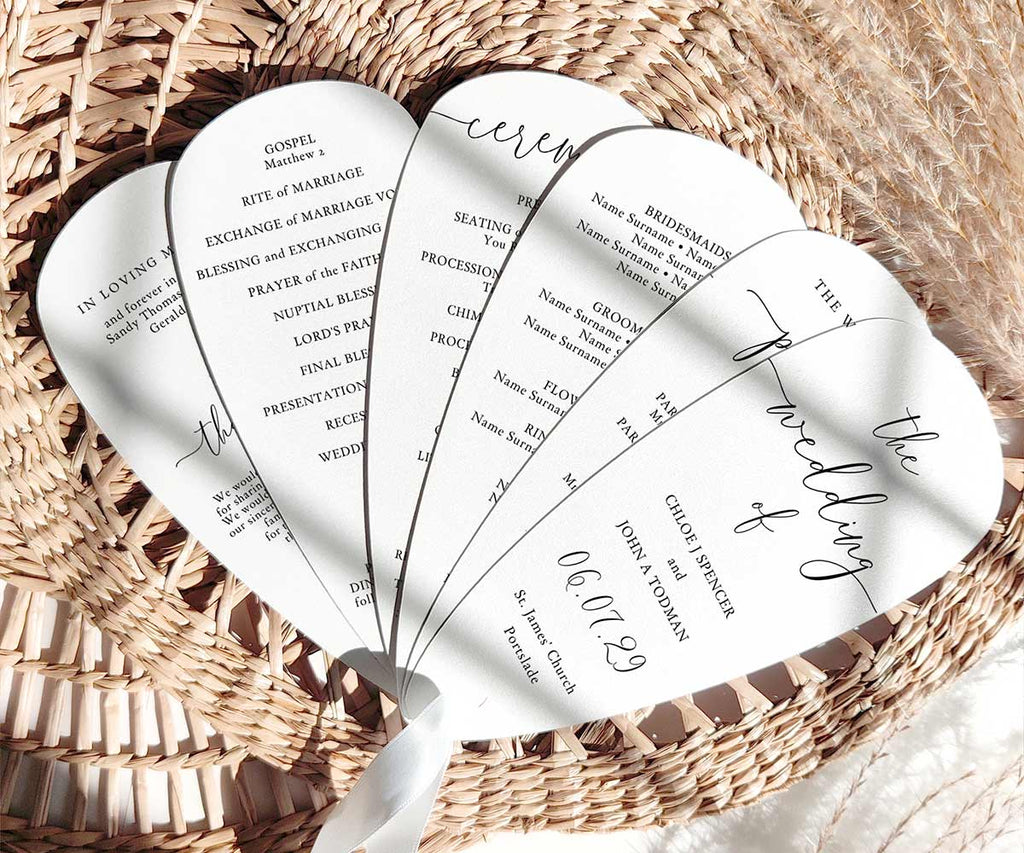 IN LOVING
and forever in
Sandy Thomas
Gerald
We would
for sharing
We would
our sincer
for
GOSPEL
Matthew 2
RITE of MARRIAGE
EXCHANGE of MARRIAGE VO
BLESSING and EXCHANGING
PRAYER of the FAITH
NUPTIAL BLESS
LORD'S PRA
FINAL BLE
PRESENTATION
RECES
WEDD
DIN
foll
cerem
PRE
SEATING
You
PROCESSION
CHIM
PROC
BRIDESMAIDS
Name Surname • Name
Name Surname • Na
Name Surnam
Name Surname • Na
Name Surnam
GROOM
Name Surname •
Name
Name Surname
FLOW
Name Surnam
RIN
Name Surna
THE W
p
PAR
PAR
the
wedding
of
CHLOE J SPENCER
and
JOHN A TODMAN
06.07.29
St. James' Church
Portslade